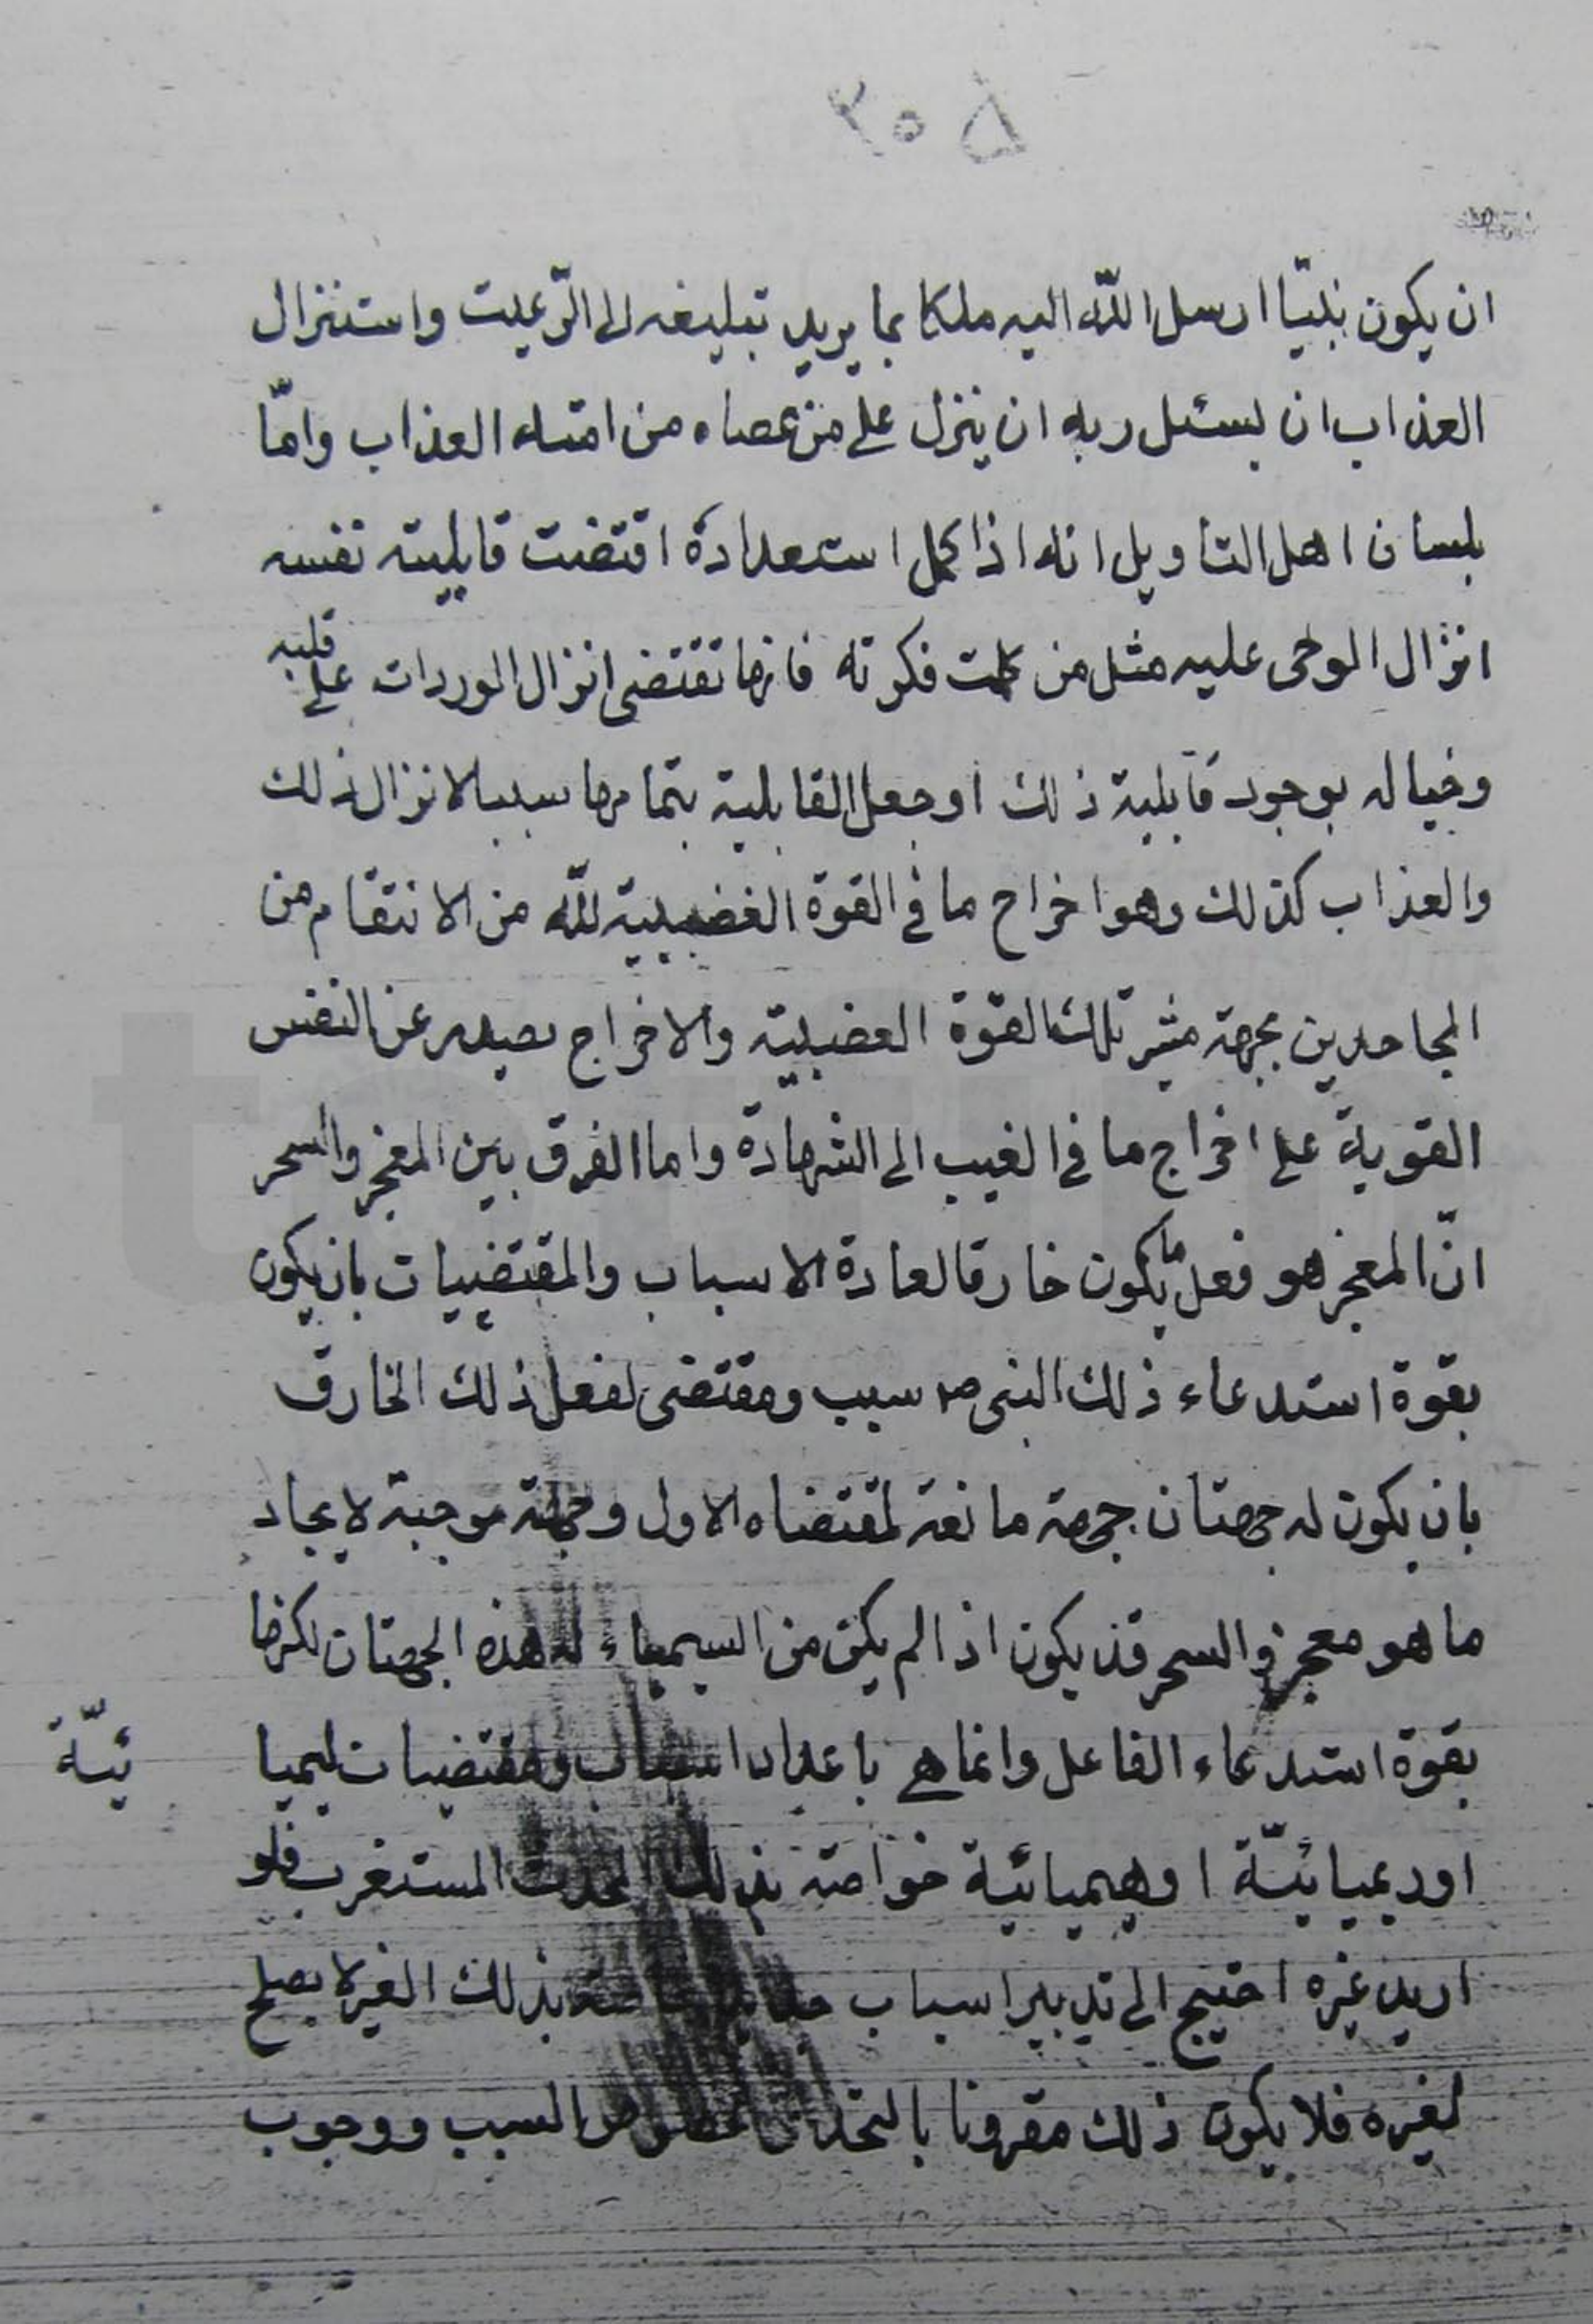 ٣٠۵
ان يكون نبيّا ارسل اللّه اليه ملكا بما يريد تبليغه الى الرّعيت واستنزال
العذاب ان يسئل ربه ان ينزل على من عصاه من امته العذاب وامّا
بلسان اهل التأويل انه اذا كمل استعداده اقتضت قابليته نفسه
انزال الوحى عليه مثل من كملت فكرته فانها تقتضى انزال الوردات على قلبه
وخياله بوجود قابلية ذلك او جعل القابلية بتمامها سببا لانزال ذلك
والعذاب كذلك وهو اخراج ما فى القوة الغضبيية للّه من الانتقام من
الجاحدين بجهة مثير تلك القوة الغضبيّة والاخراج يصدر عن النفس
القوية على اخراج ما فى الغيب الى الشهادة واما الفرق بين المعجز والسحر
انّ المعجز هو فعل ما يكون خارقا لعادة الاسباب والمقتضيات بان يكون
بقوة استدعاء ذلك النبى ص سبب ومقتضى لفعل ذلك الخارق
بان يكون له جهتان جهة مانعة لمقتضاه الاول وجهة موجبة لايجاد
ما هو معجز والسحر قد يكون اذا لم يكن من السيمياء له هذه الجهتان لكنها
بقوة استدعاء الفاعل وانما هى باعداد اسباب ومقتضيات ليميا
ئيّة
او ريميائيّة او هيميائية خواصه بذلك المستغرب فلو
اريد غيره احتيج الى تدبير اسباب بذلك الغير لا يصلح
لغيره فلا يكون ذلك مقرونا بالتحدى السبب ووجوب